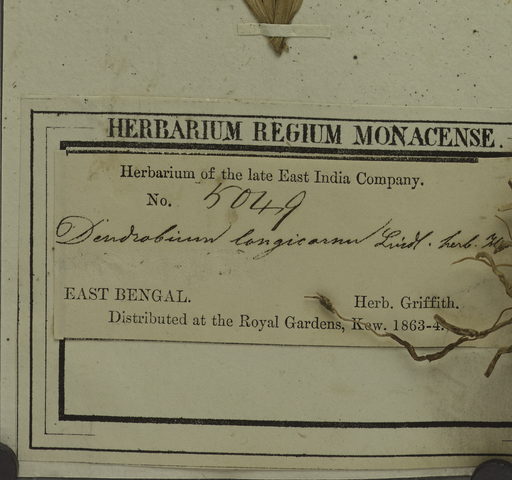 HERBARIUM REGIUM MONACENSE.
Herbarium of the late East India Company.
No. 5049
Dendrobium longicornu Lindl. herb.
EAST BENGAL. Herb. Griffith.
Distributed at the Royal Gardens, Kew. 1863-4.